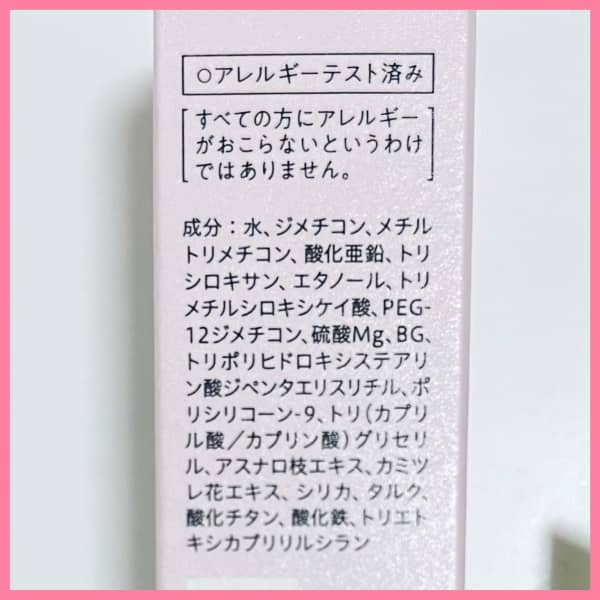 ○アレルギーテスト済み
すべての方にアレルギー
がおこらないというわけ
ではありません。
成分：水、ジメチコン、メチル
トリメチコン、酸化亜鉛、トリ
シロキサン、エタノール、トリ
メチルシロキシケイ酸、PEG-
12ジメチコン、硫酸Mg、BG、
トリポリヒドロキシステアリ
ン酸ジペンタエリスリチル、ポ
リシリコーン-9、トリ（カプリ
ル酸／カプリン酸）グリセリ
ル、アスナロ枝エキス、カミツ
レ花エキス、シリカ、タルク、
酸化チタン、酸化鉄、トリエト
キシカプリリルシラン